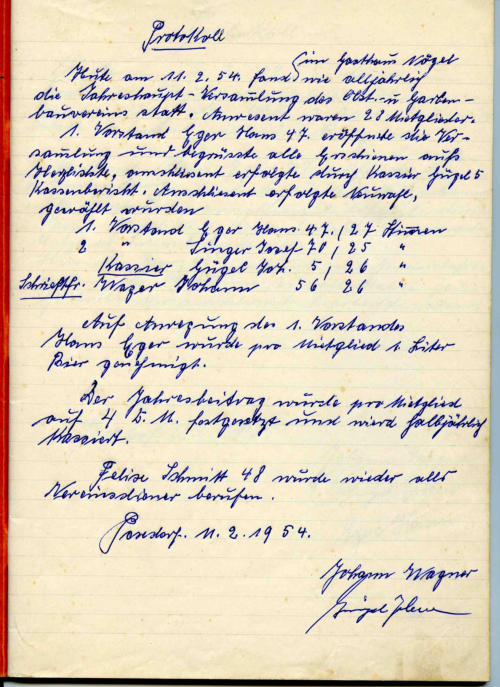 Protokoll
(im Gasthaus Nögel
Heute am 11.2.54. fand wie alljährlich
die Jahreshaupt-Versamlung des Obst- u Garten-
bauvereins statt. Anwesent waren 28 Mitglieder.
1. Vorstand Eger Hans 47. eröffnete die Ver-
samlung und begrüsste alle Erschienen aufs
Herzlichste, anschliesent erfolgte durch Kassier Gügel 5
Kassenbericht. Anschliesent erfolgte Neuwahl,
gewählt wurden
1. Vorstand Eger Hans 47, / 27 Stimmen
2 " Singer Josef 70 / 25 "
Kassier Gügel Joh. 5 / 26 "
Schriftfhr. Wagner Johann 56 26 "
Auf Anregung des 1. Vorstandes
Hans Eger wurde pro Mietglied 1. Liter
Bier genehmigt.
Der Jahresbeitrag wurde pro Mietglied
auf 4 D. M. festgesetzt und wierd halbjährlich
kassiert.
Felix Schmitt 48 wurde wieder alls
Vereinsdiener berufen.
11.2.1954.
Johann Wagner
Gügel Johann